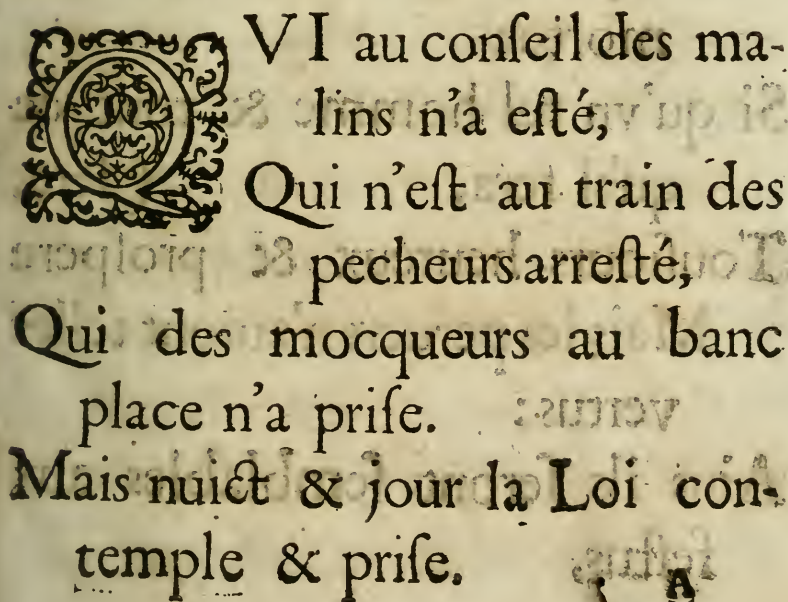 QVI au conſeil des ma-
lins n'a eſté,
Qui n'eſt au train des
pecheurs arreſté,
Qui des mocqueurs au banc
place n'a priſe.
Mais nuict & jour la Loi con-
temple & priſe.
A